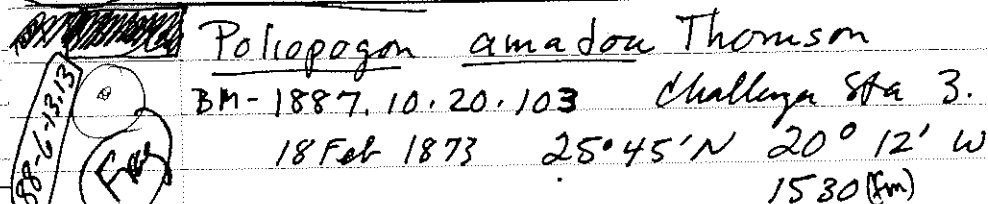 Poliopogon amadou Thomson
BM-1887.10.20.103 Challenger Sta 3.
18 Feb 1873 25°45'N 20° 12' W
1530 (fm)
88-6-13.13